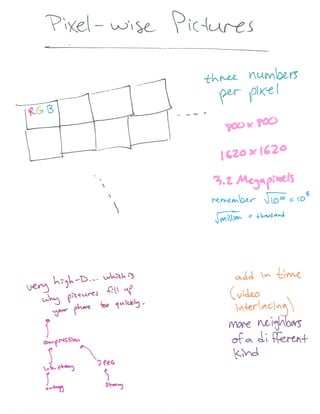 Pixel-wise Pictures
three numbers
per pixel
RGB
800 x 800
1620 x 1620
3.2 Megapixels
remember √10¹⁰ = 10⁵
√million = thousand
very high-D... which is
why pictures fill up
your phone too quickly.
compression
JPEG
info. theory
entropy
add in time
(video
interlacing)
more neighbors
of a different
kind